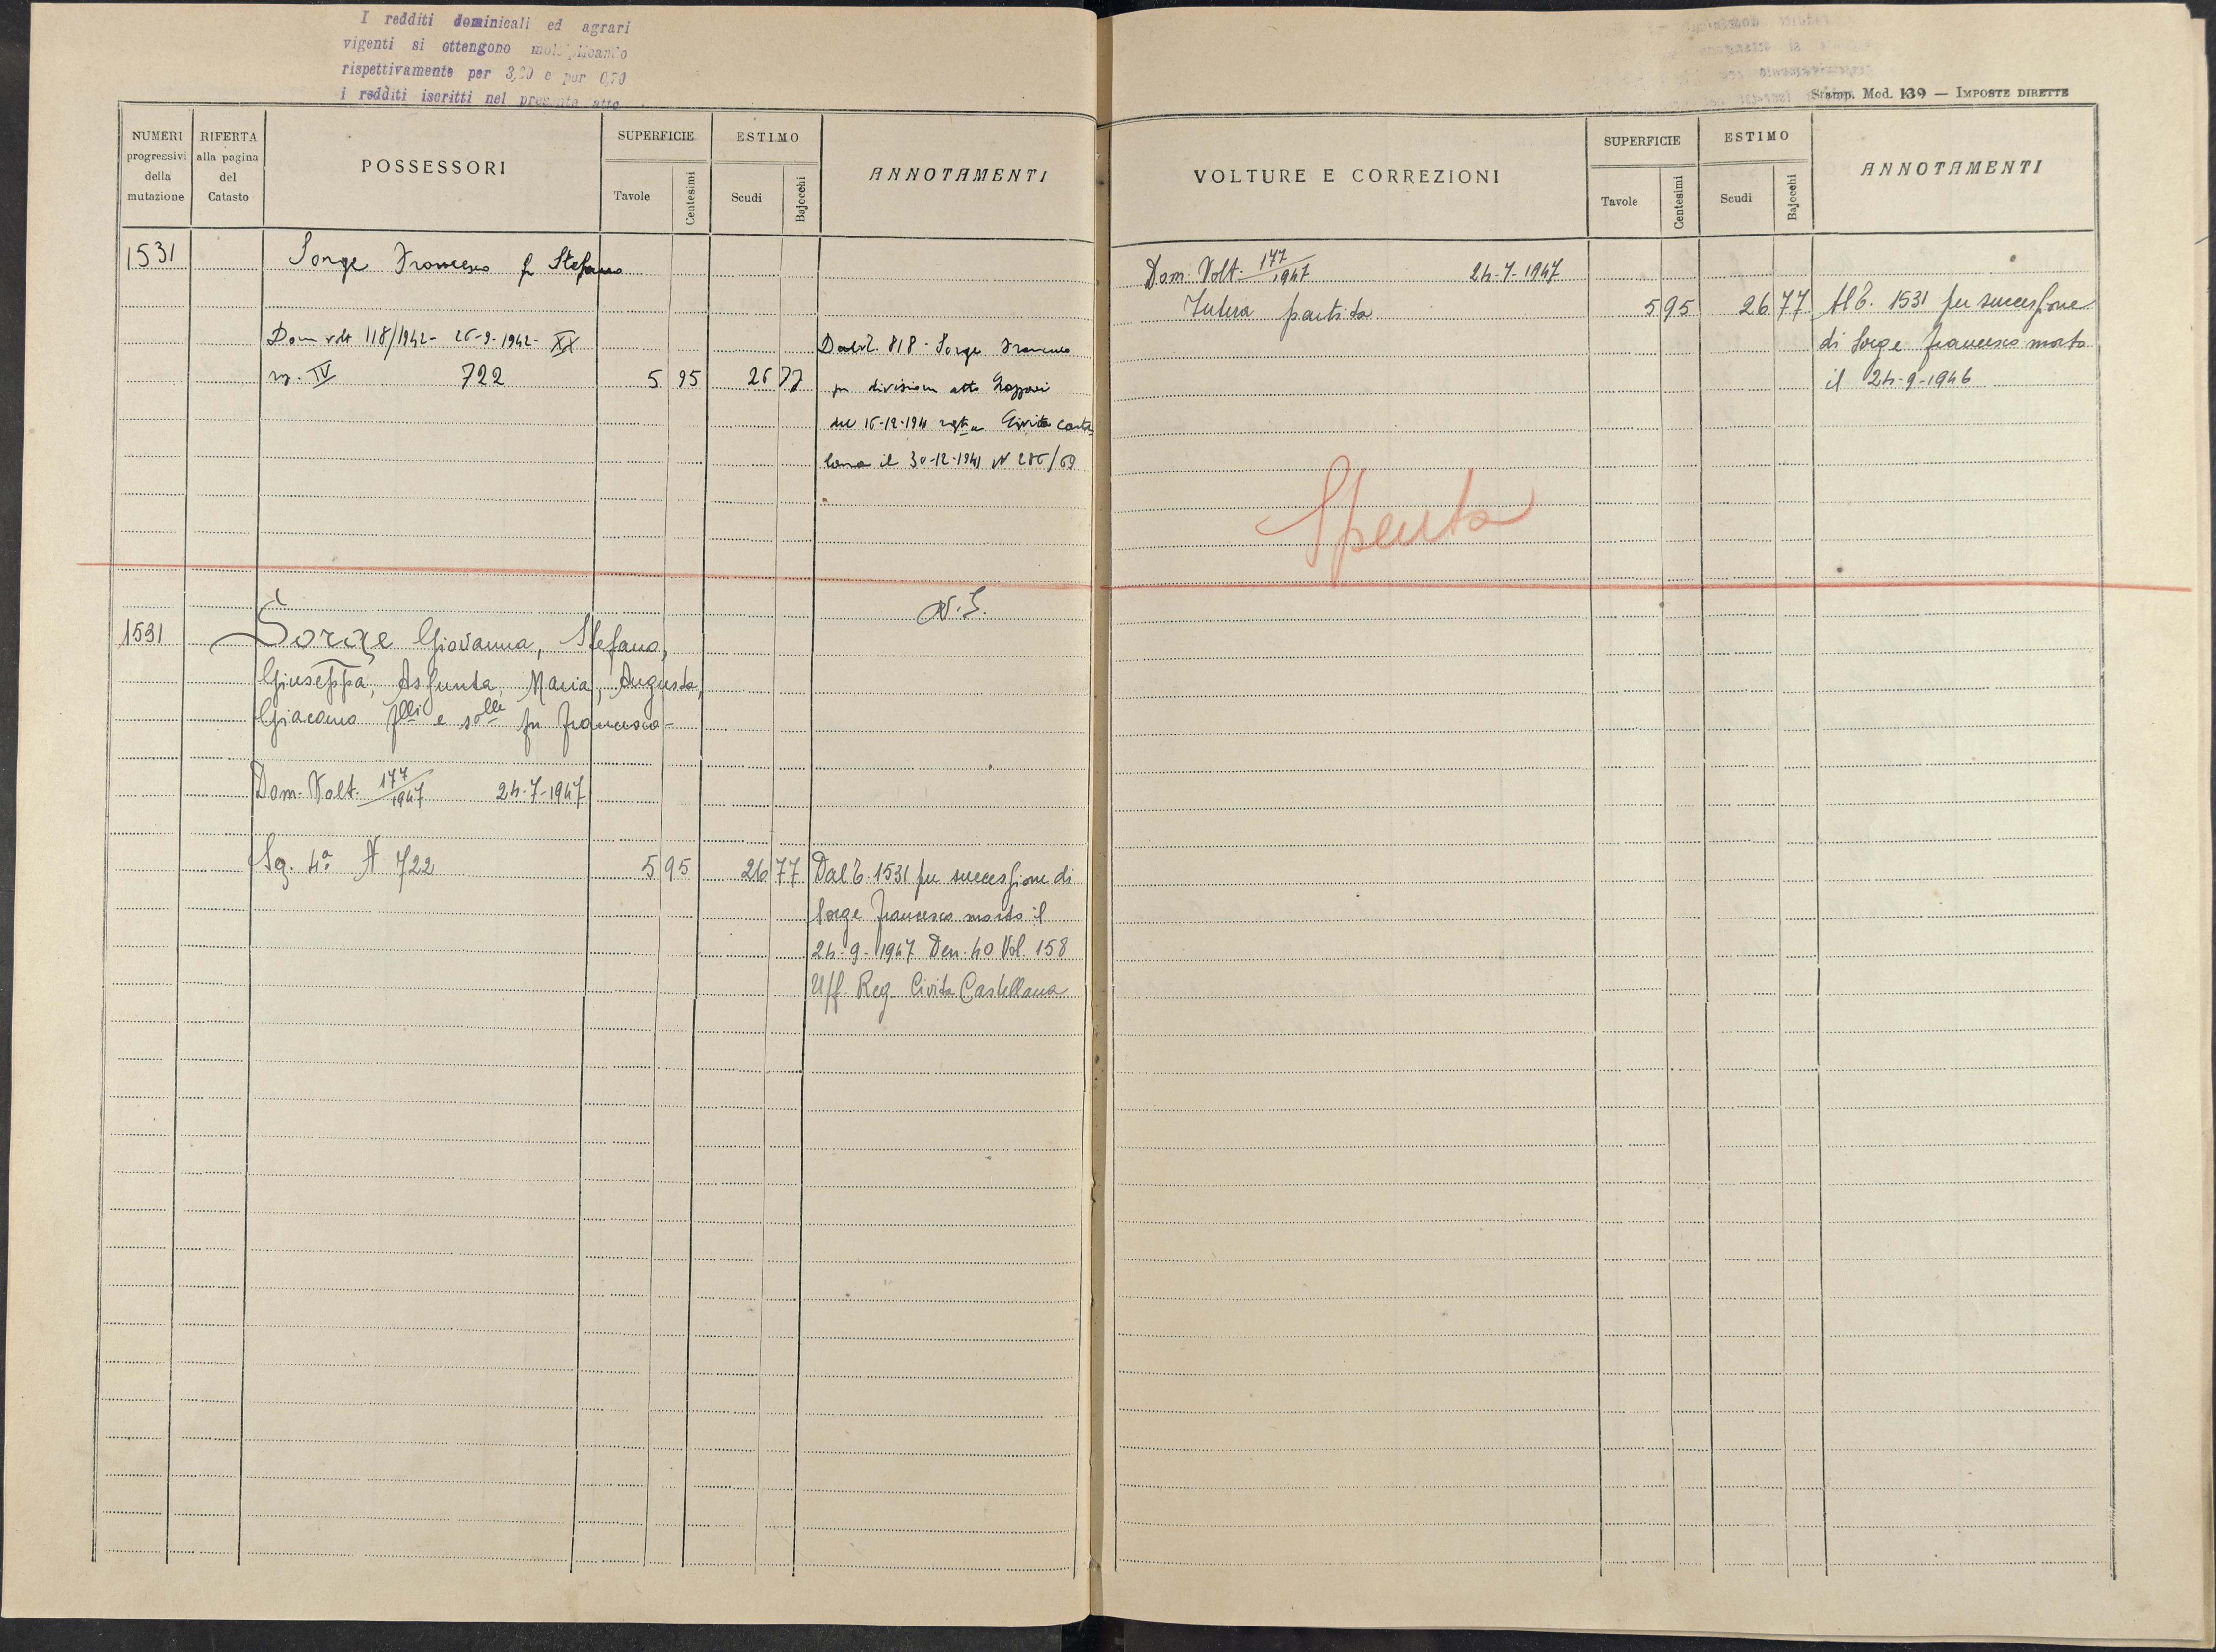 I redditi dominicali ed agrari
vigenti si ottengono moltiplicando
rispettivamente per 3,20 e per 0,70
i redditi iscritti nel presente atto
Stamp. Mod. 139 — IMPOSTE DIRETTE
NUMERI progressivi della mutazione
RIFERTA alla pagina del Catasto
POSSESSORI
SUPERFICIE
Tavole
Centesimi
ESTIMO
Scudi
Bajocchi
ANNOTAMENTI
VOLTURE E CORREZIONI
SUPERFICIE
Tavole
Centesimi
ESTIMO
Scudi
Bajocchi
ANNOTAMENTI
1531 Sorge Francesco fu Stefano
Dom volt 118/1942 - 26-9-1942 - XX
sez. IV 722 5 95 26 77
Dal T. 818 - Sorge Francesco
per divisione atto
del 16-12-1941 Civita Castel
lana il 30-12-1941 N 286/69
Dom. Volt. 177/1947 24-7-1947
Intera partita 5 95 26 77
Al T. 1531 per successione
di Sorge Francesco morto
il 24-9-1946
Spenta
N.S.
1531 Sorge Giovanna, Stefano,
Giuseppa, Assunta, Maria, Augusta,
Giacomo flli e solle fu Francesco -
Dom. Volt. 177/1947 24-7-1947
Sez. 4ª N 722 5 95 26 77
Dal T. 1531 per successione di
Sorge Francesco morto il
24-9-1947 Den. 40 Vol. 158
Uff. Reg. Civita Castellana